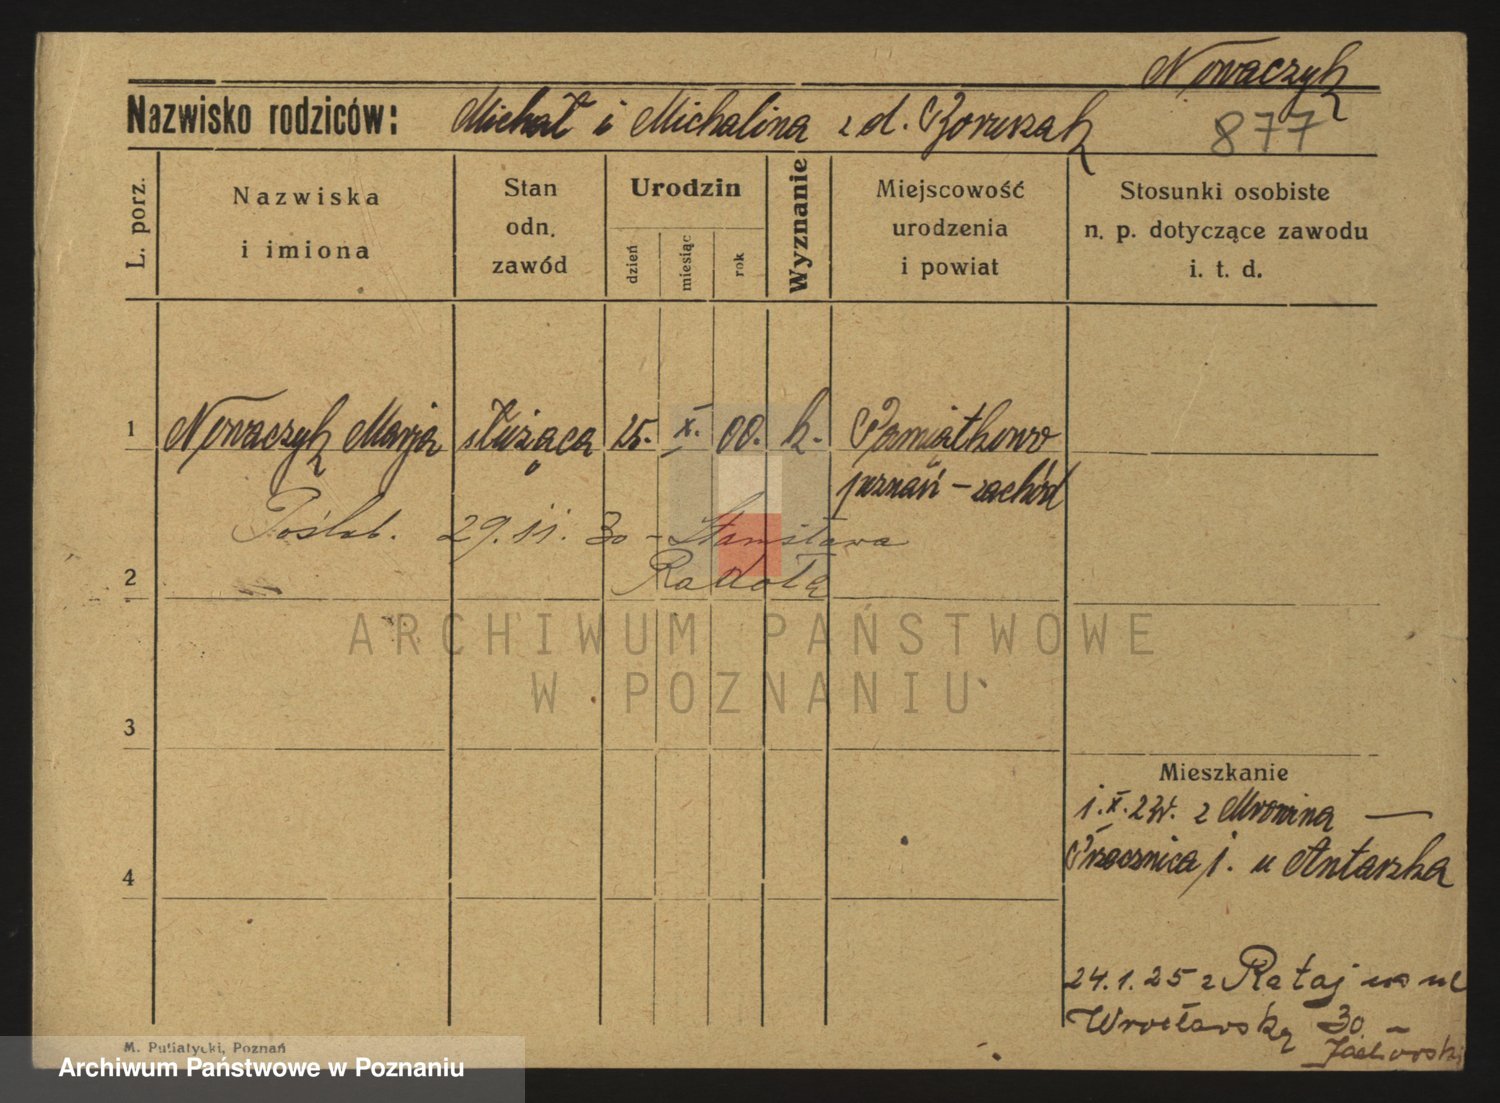 Nowaczyk
Nazwisko rodziców: Michał i Michalina z d.
877
L. porz.
Nazwiska
i imiona
Stan
odn.
zawód
Urodzin
dzień
miesiąc
rok
Wyznanie
Miejscowość
urodzenia
i powiat
Stosunki osobiste
n. p. dotyczące zawodu
i. t. d.
1 Nowaczyk Marja służąca 25. X. 00. k. Pamiątkowo
poznań - zachód
Poślub. 29.11.30 - Stanisława
Radołę
2
ARCHIWUM PAŃSTWOWE
W POZNANIU
3
Mieszkanie
1.X.24. z Mrowina —
1. u Antaszka
4
24.1.25 z Rataj na ul
Wrocławską 30 -
M. Putiatycki, Poznań
Archiwum Państwowe w Poznaniu